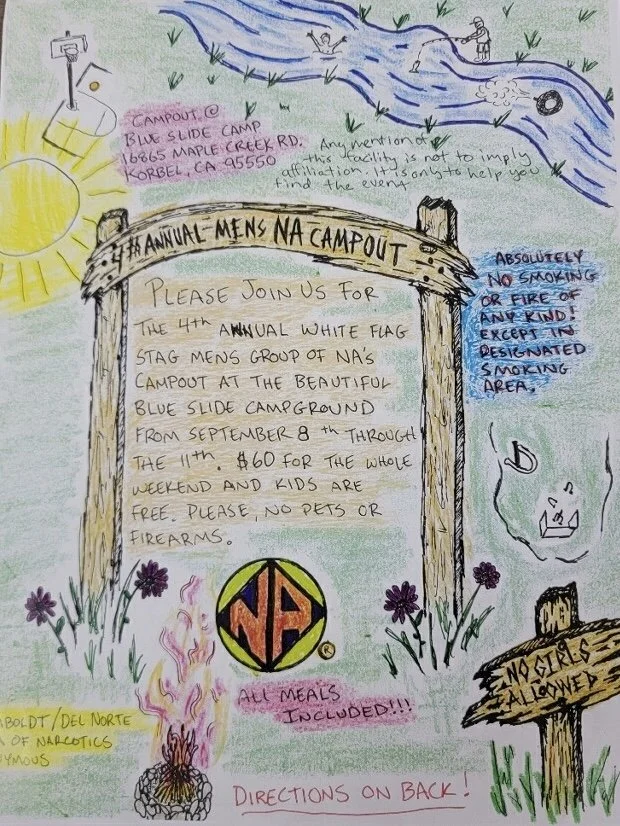 CAMPOUT @
BLUE SLIDE CAMP
16865 MAPLE CREEK RD.
KORBEL, CA 95550
Any mention of
this facility is not to imply
affiliation. It is only to help you
find the event
4th ANNUAL MENS NA CAMPOUT
PLEASE JOIN US FOR
THE 4th ANNUAL WHITE FLAG
STAG MENS GROUP OF NA'S
CAMPOUT AT THE BEAUTIFUL
BLUE SLIDE CAMPGROUND
FROM SEPTEMBER 8th THROUGH
THE 11th. $60 FOR THE WHOLE
WEEKEND AND KIDS ARE
FREE. PLEASE, NO PETS OR
FIREARMS.
ABSOLUTELY
NO SMOKING
OR FIRE OF
ANY KIND!
EXCEPT IN
DESIGNATED
SMOKING
AREA.
NA ®
NO GIRLS
ALLOWED
ALL MEALS
INCLUDED!!!
BOLDT/DEL NORTE
OF NARCOTICS
YMOUS
DIRECTIONS ON BACK!